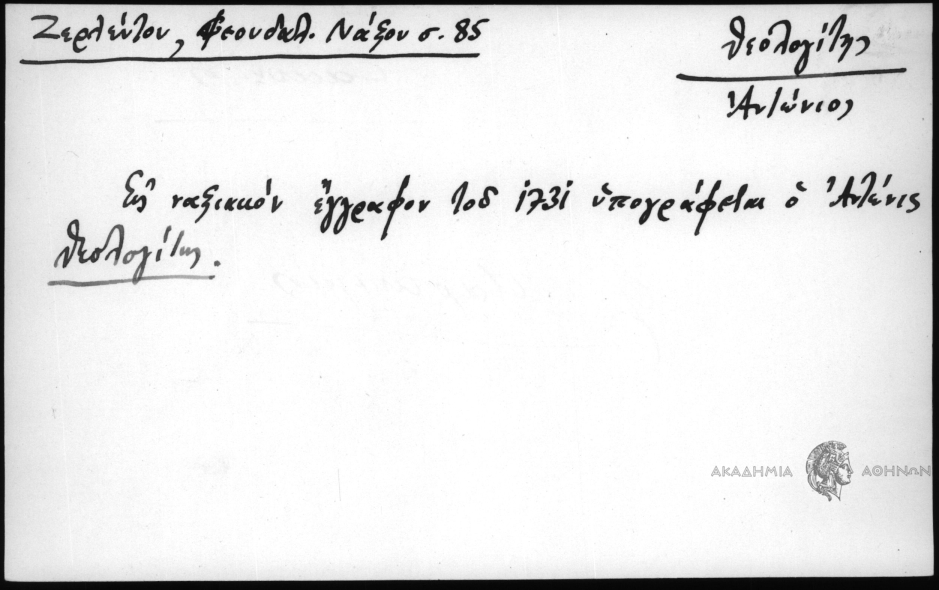 Ζερλέντου, Φεουδαλ. Νάξου σ. 85
Θεολογίτης
Ἀντώνιος
Εἰς ναξιακόν ἔγγραφον τοῦ 1731 ὑπογράφεται ὁ Ἀντώνις
Θεολογίτης.
ΑΚΑΔΗΜΙΑ ΑΘΗΝΩΝ